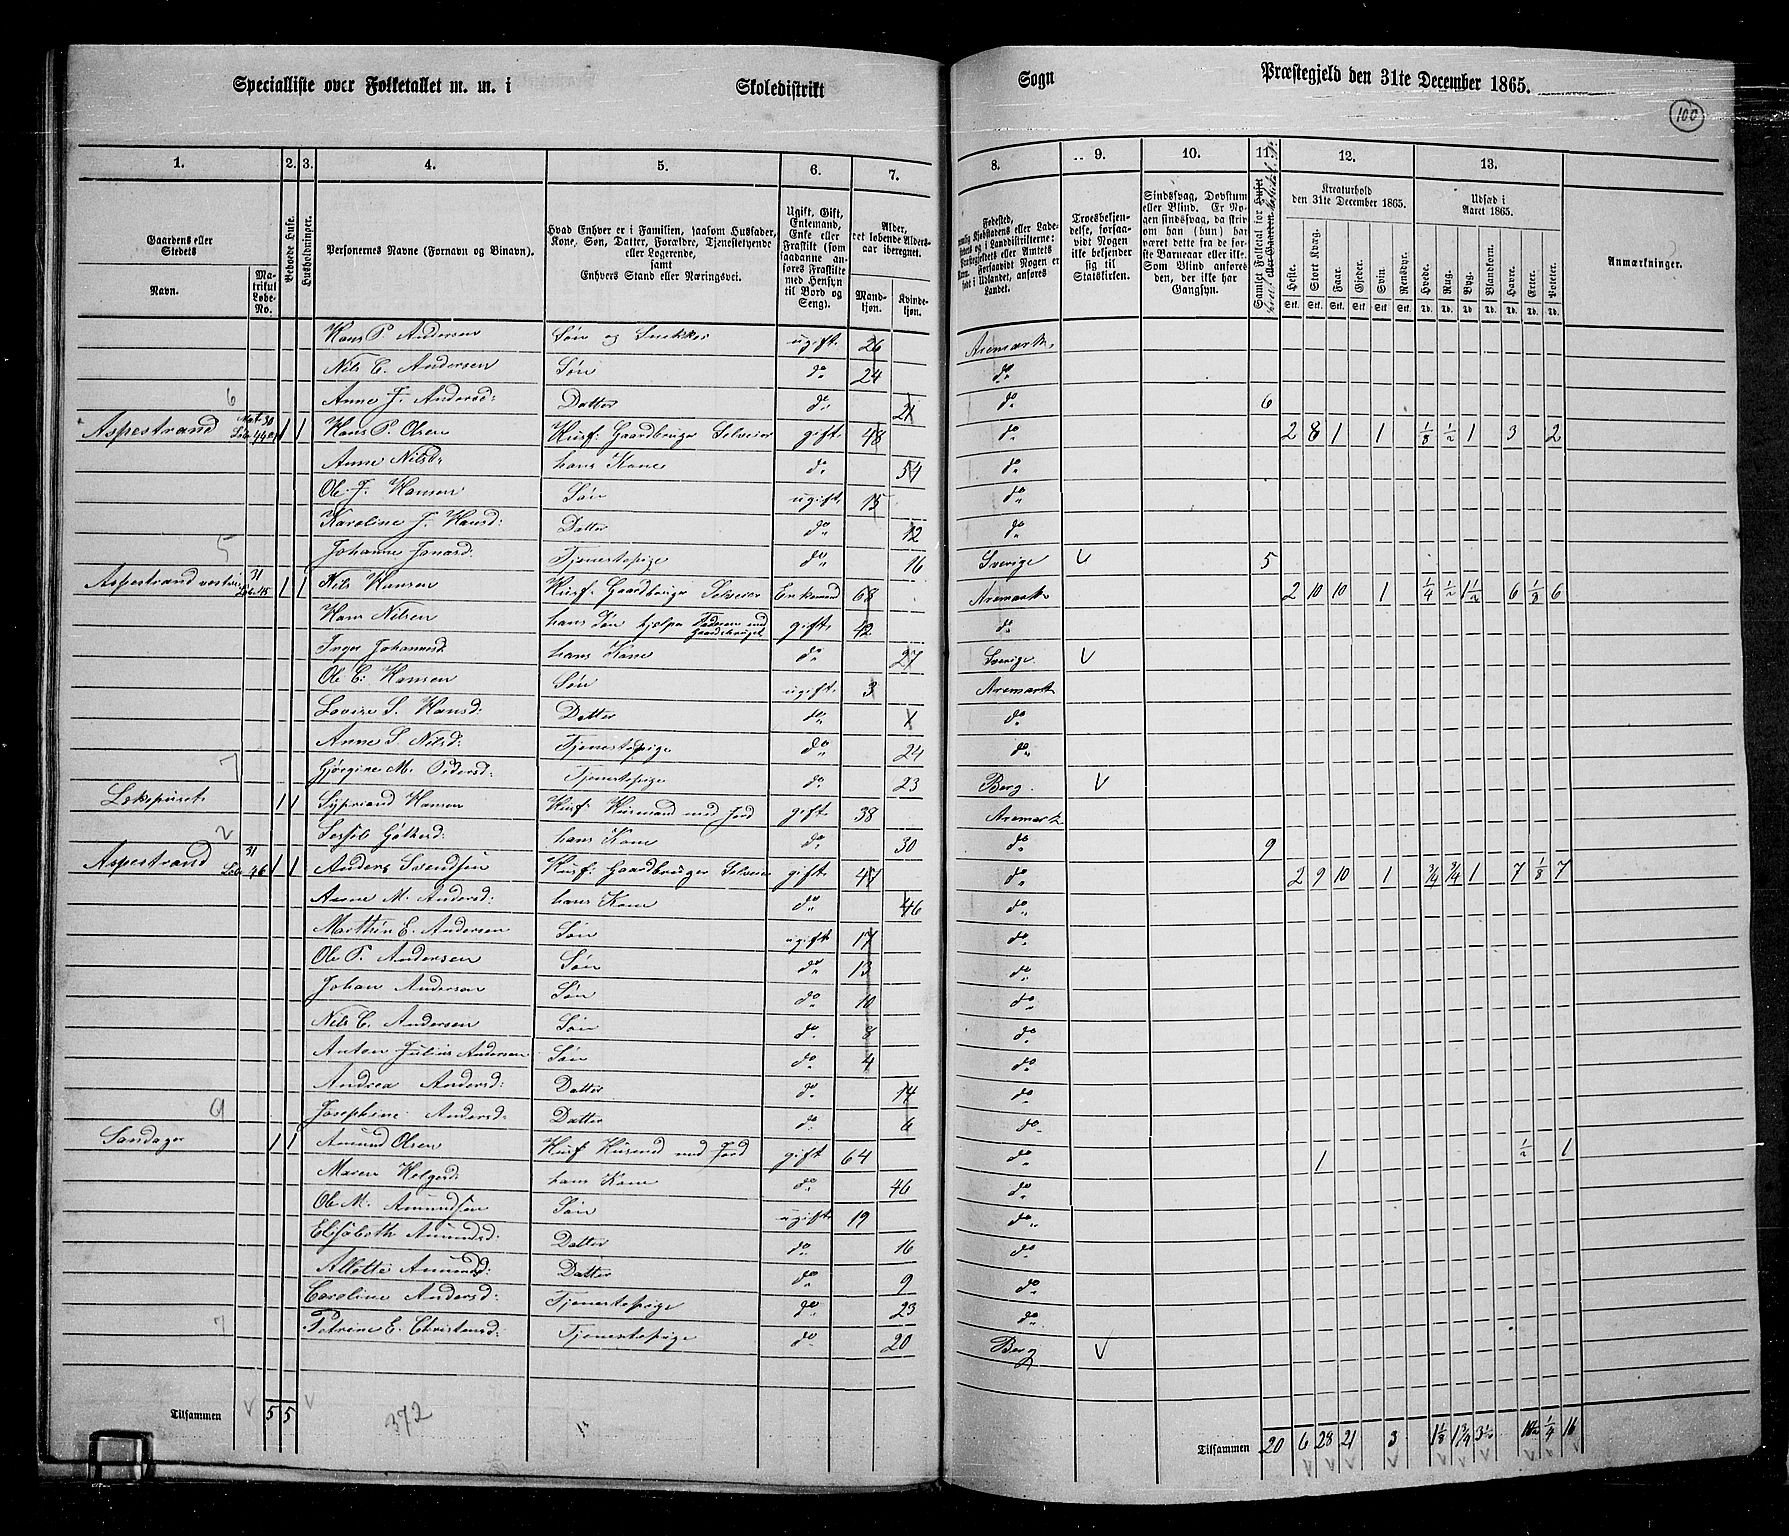 Specialliste over Folketallet m. m. i Skoledistrikt Sogn Præstegjeld den 31te December 1865.
100
1. 2. 3. 4. 5. 6. 7. 8. 9. 10. 11. 12. 13.
Gaardens eller Stedets Navn. Matrikul Løbe-No. Beboede Huse. Husholdninger. Personernes Navne (Fornavn og Binavn). Hvad Enhver er i Familien, saasom Husfader, Kone, Søn, Datter, Forældre, Tjenestetyende eller Logerende, samt Enhvers Stand eller Næringsvei. Ugift, Gift, Enkemand, Enke eller Fraskilt (som saadanne anføres Fraskilte med Hensyn til Bord og Seng). Alder, det løbende Aldersaar iberegnet. Mandkjøn. Kvindekjøn. Troesbekjendelse, forsaavidt Nogen ikke bekjender sig til Statskirken. Sindssvag, Døvstum eller Blind. Er Nogen sindssvag, da skrives om han (hun) har været dette fra de første Barneaar eller ikke. Som Blind anføres den, der ikke har Gangsyn. Kreaturhold den 31te December 1865. Udsæd i Aaret 1865. Anmærkninger.
Heste. Stort Kvæg. Faar. Gjeder. Svin. Rensdyr. Hvede. Rug. Byg. Blandkorn. Havre. Erter. Poteter.
Hans P. Andersen Søn og Snekker ugift 26 Aremark
Nils C. Andersen Søn do 24 do
6 Anne J. Andersd: Datter do 21 do 6
Aspestrand Mat. 30 Løb. 44 1 1 Hans P. Olsen Husf: Gaardbruger Selveier gift 48 do 2 8 1 1 1/8 1/2 1 3 2
Anne Nilsd: hans Kone do 54 do
Ole J. Hansen Søn ugift 15 do
Karoline J. Hansd: Datter do 12 do
5 Johanne Jonasd: Tjenestepige do 16 Sverige V 5
Aspestrand vestre 31 Løb. 45 1 1 Nils Hansen Husf: Gaardbruger Selveier Enkemand 68 Aremark 2 10 10 1 1/4 1/2 1 1/2 6 1/8 6
Hans Nilsen hans Søn hjelper Faderen med Gaardsbruget gift 42 do
Inger Johannesd: hans Kone do 27 Sverige V
Ole C. Hansen Søn ugift 3 Aremark
Lovise S. Hansd: Datter do 1 do
Anne S. Nilsd: Tjenestepige do 24 do
7 Gjorgine M. Pedersd: Tjenestepige do 23 Berg V
1 1 Sypriand Hansen Husf: Husmand med Jord gift 38 Aremark
2 hans Kone do 30 do 9
Aspestrand 31 Løb. 46 1 1 Anders Svendsen Husf: Gaardbruger Selveier gift 47 do 2 9 10 1 3/4 3/4 1 7 1/8 7
Anne M. Andersd: hans Kone do 46 do
Marthin E. Andersen Søn ugift 17 do
Ole P. Andersen Søn do 13 do
Johan Andersen Søn do 10 do
Nils C. Andersen Søn do 8 do
Anton Julius Andersen Søn do 4 do
Andrea Andersd: Datter do 14 do
9 Josephine Andersd: Datter do 6 do
Sandager 1 1 Amund Olsen Husf Husmd med Jord gift 64 do 1 1/2 1
Maren Holgersd: hans Kone do 46 do
Ole M. Amundsen Søn ugift 19 do
Elisabeth Amundsd: Datter do 16 do
Allette Amundsd: Datter do 9 do
Caroline Andersd: Tjenestepige do 23 do
7 Petrine E. Christensd: Tjenestepige do 20 Berg V
Tilsammen 5 5 372 Tilsammen 20 6 28 21 3 1 1/8 1 3/4 3 1/2 1/4 16